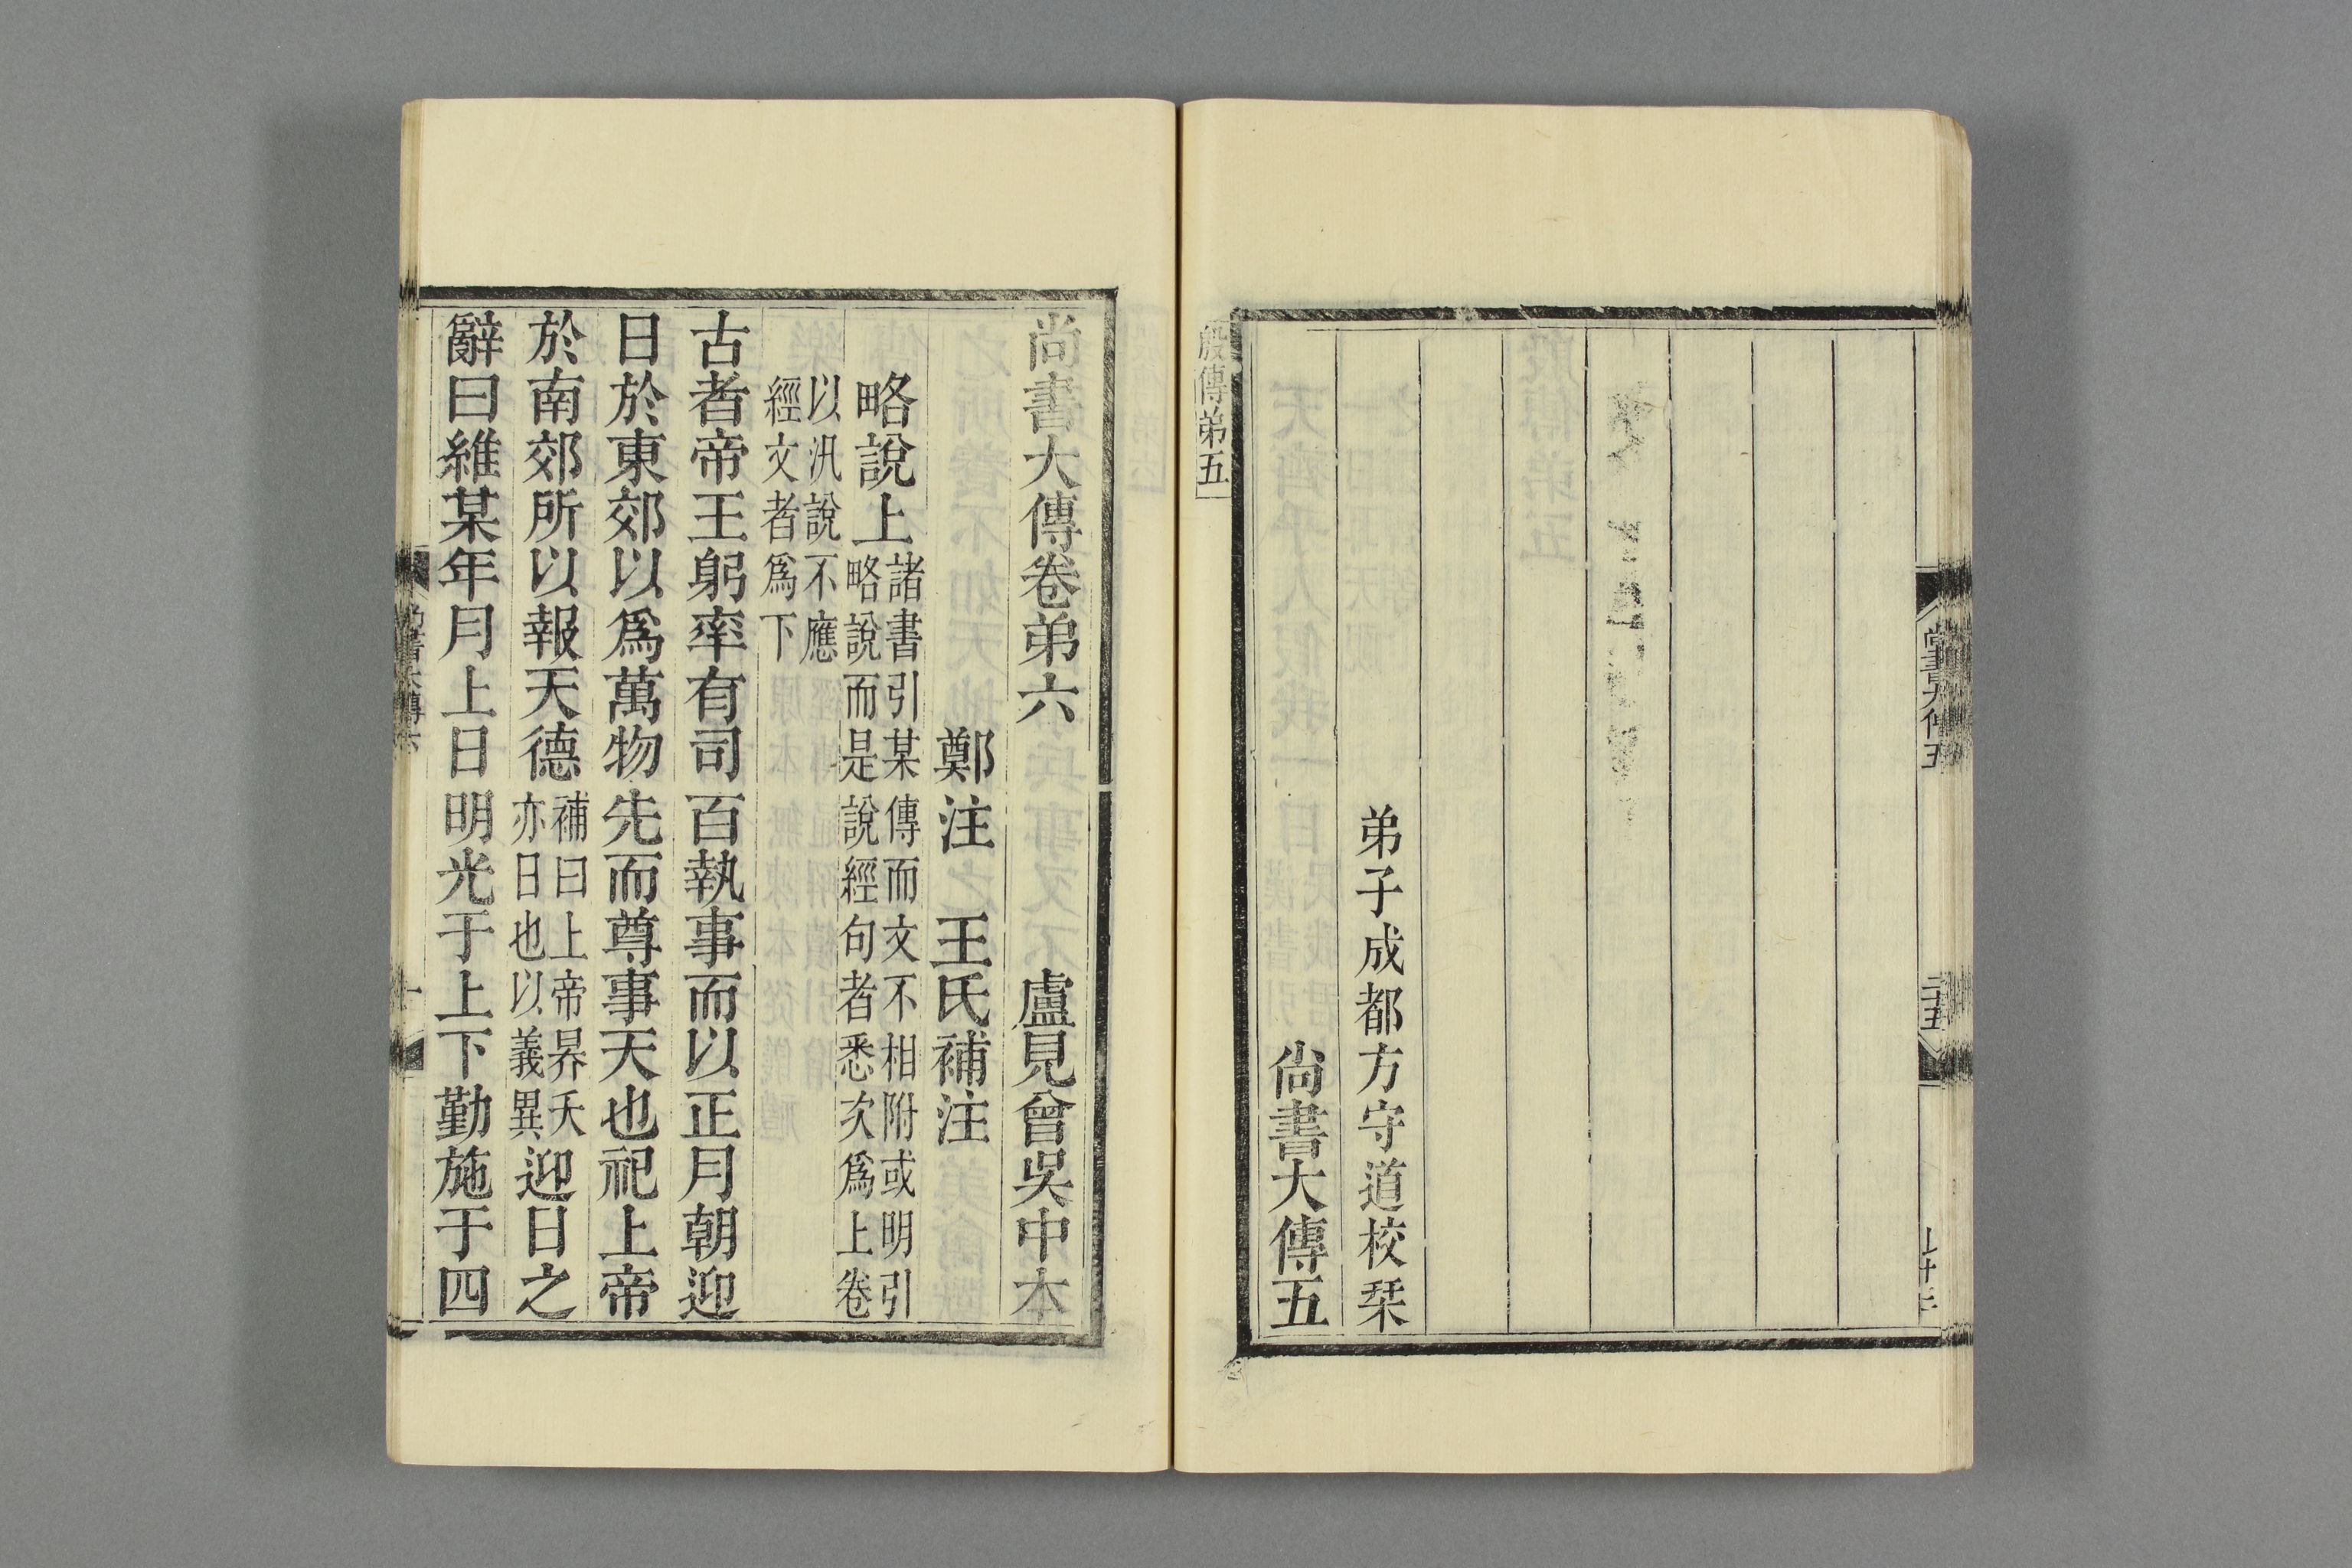 弟子成都方守道校栞
尚書大傳五
殷傳弟五
尚書大傳卷弟六 盧見曾吳中本
鄭注 王氏補注
略說上 諸書引某傳而文不相附或明引
略說而是說經句者悉次爲上卷
以汎說不應
經文者爲下
古者帝王躬率有司百執事而以正月朝迎
日於東郊以爲萬物先而尊事天也祀上帝
於南郊所以報天德 補曰上帝昦天
亦日也以義異 迎日之
辭曰維某年月上日明光于上下勤施于四